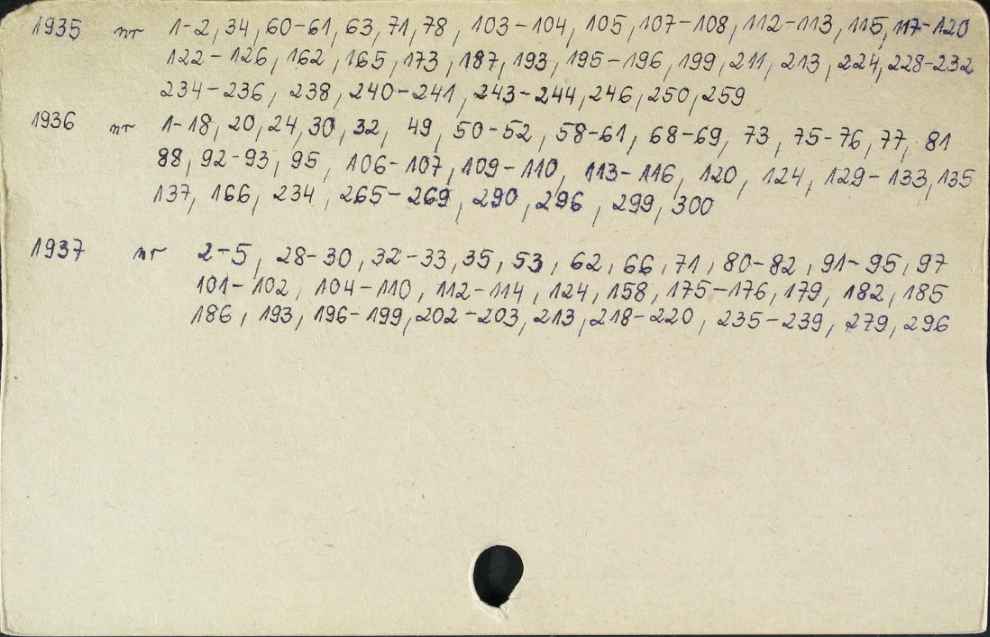 1935 nr 1-2, 34, 60-61, 63, 71, 78, 103-104, 105, 107-108, 112-113, 115, 117-120
122-126, 162, 165, 173, 187, 193, 195-196, 199, 211, 213, 224, 228-232
234-236, 238, 240-241, 243-244, 246, 250, 259
1936 nr 1-18, 20, 24, 30, 32, 49, 50-52, 58-61, 68-69, 73, 75-76, 77, 81
88, 92-93, 95, 106-107, 109-110, 113-116, 120, 124, 129-133, 135
137, 166, 234, 265-269, 290, 296, 299, 300
1937 nr 2-5, 28-30, 32-33, 35, 53, 62, 66, 71, 80-82, 91-95, 97
101-102, 104-110, 112-114, 124, 158, 175-176, 179, 182, 185
186, 193, 196-199, 202-203, 213, 218-220, 235-239, 279, 296